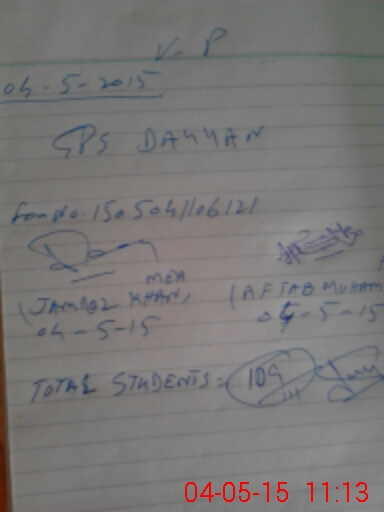 V-P
04-5-2015
GPS DAHHAN
150504106121
MEA
(JAMROZ KHAN,
(AFTAB MUHAM
04-5-15
04-5-15
TOTAL STUDENTS = 109
04-05-15 11:13